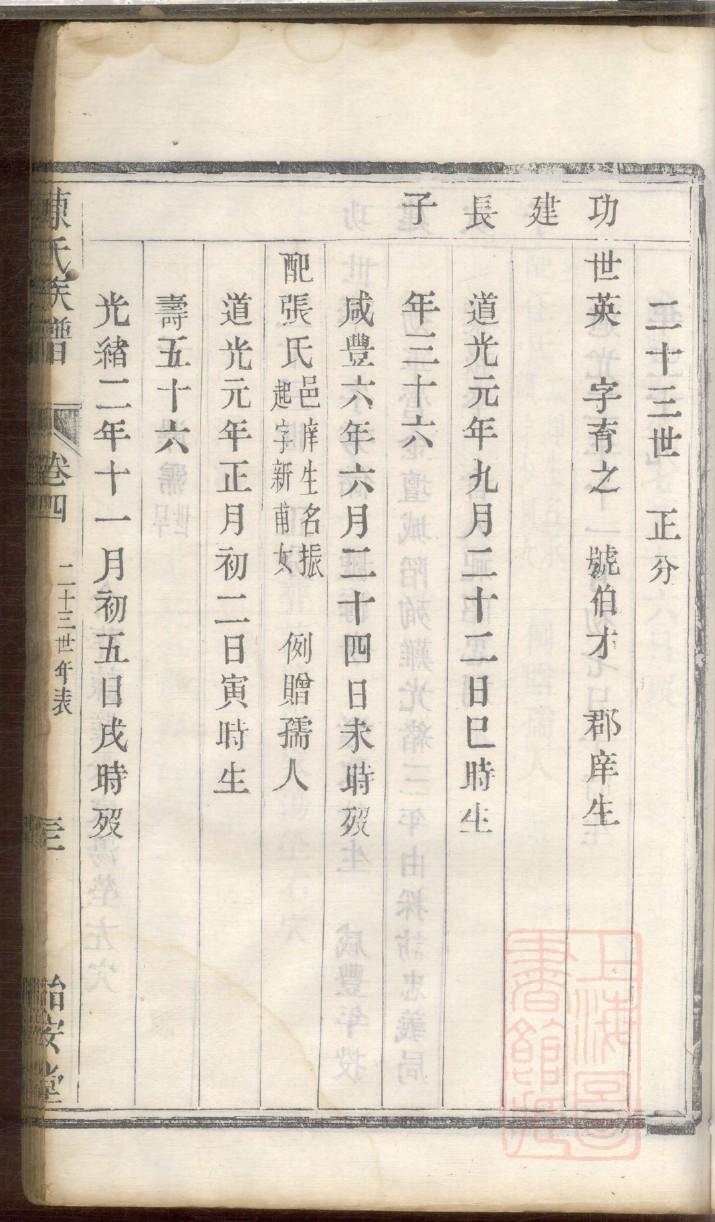 二十三世 正分
功建長子
世英 字育之 號伯才 郡庠生
道光元年九月二十二日巳時生
年三十六
咸豐六年六月二十四日未時歿
配張氏 邑庠生名振起字新甫女 例贈孺人
道光元年正月初二日寅時生
壽五十六
光緒二年十一月初五日戌時歿
陳氏族譜 卷四 二十三世年表 三 詒安堂
上海圖書館藏